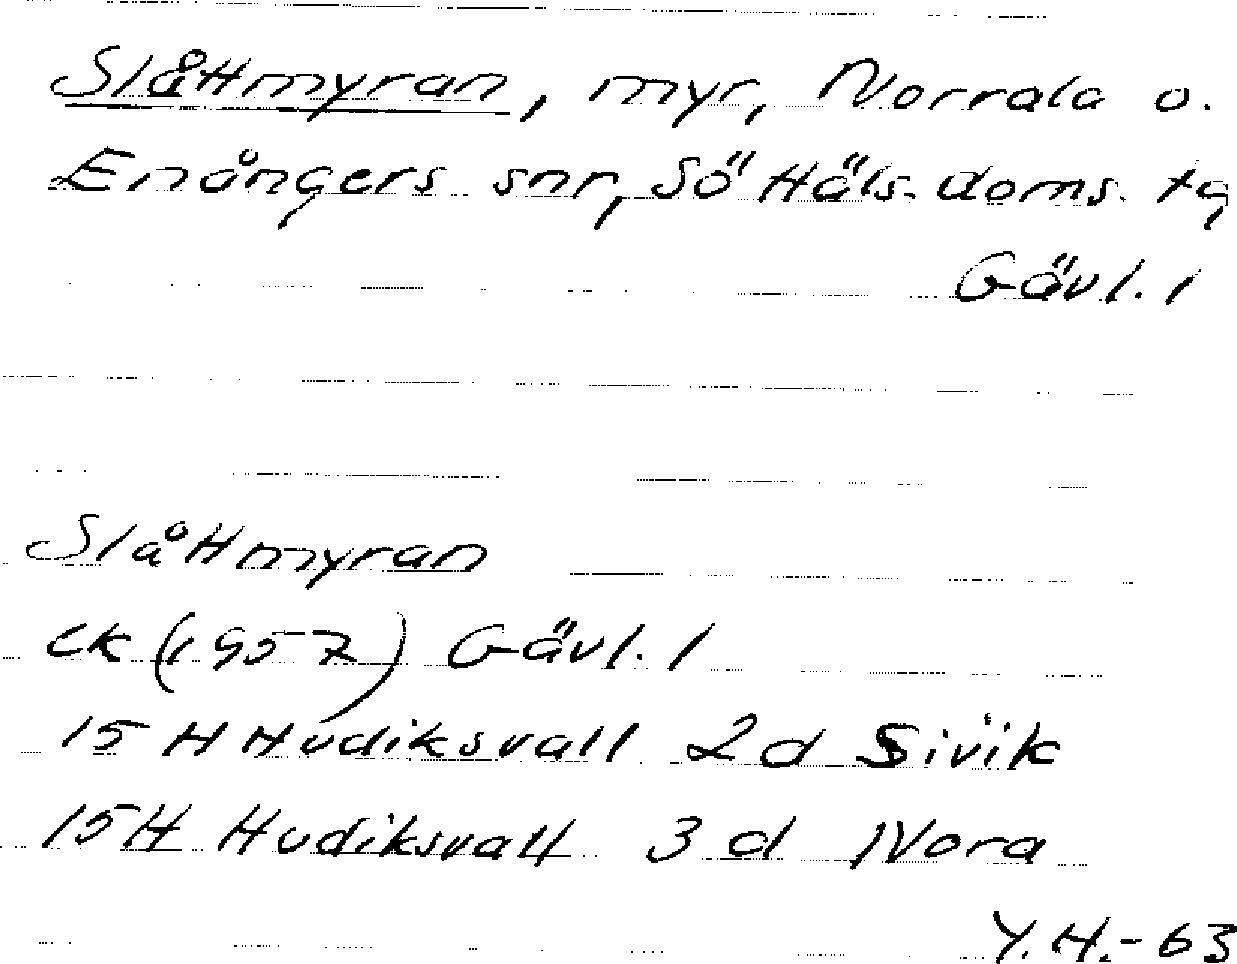 Slåttmyran, myr, Norrala o.
Enångers snr, Sö Häls. doms. tg
Gävl. l
Slåttmyran
ek (1957) Gävl. l
15 H Hudiksvall 2d Sivik
15H Hudiksvall 3d Nora
Y.H.-63